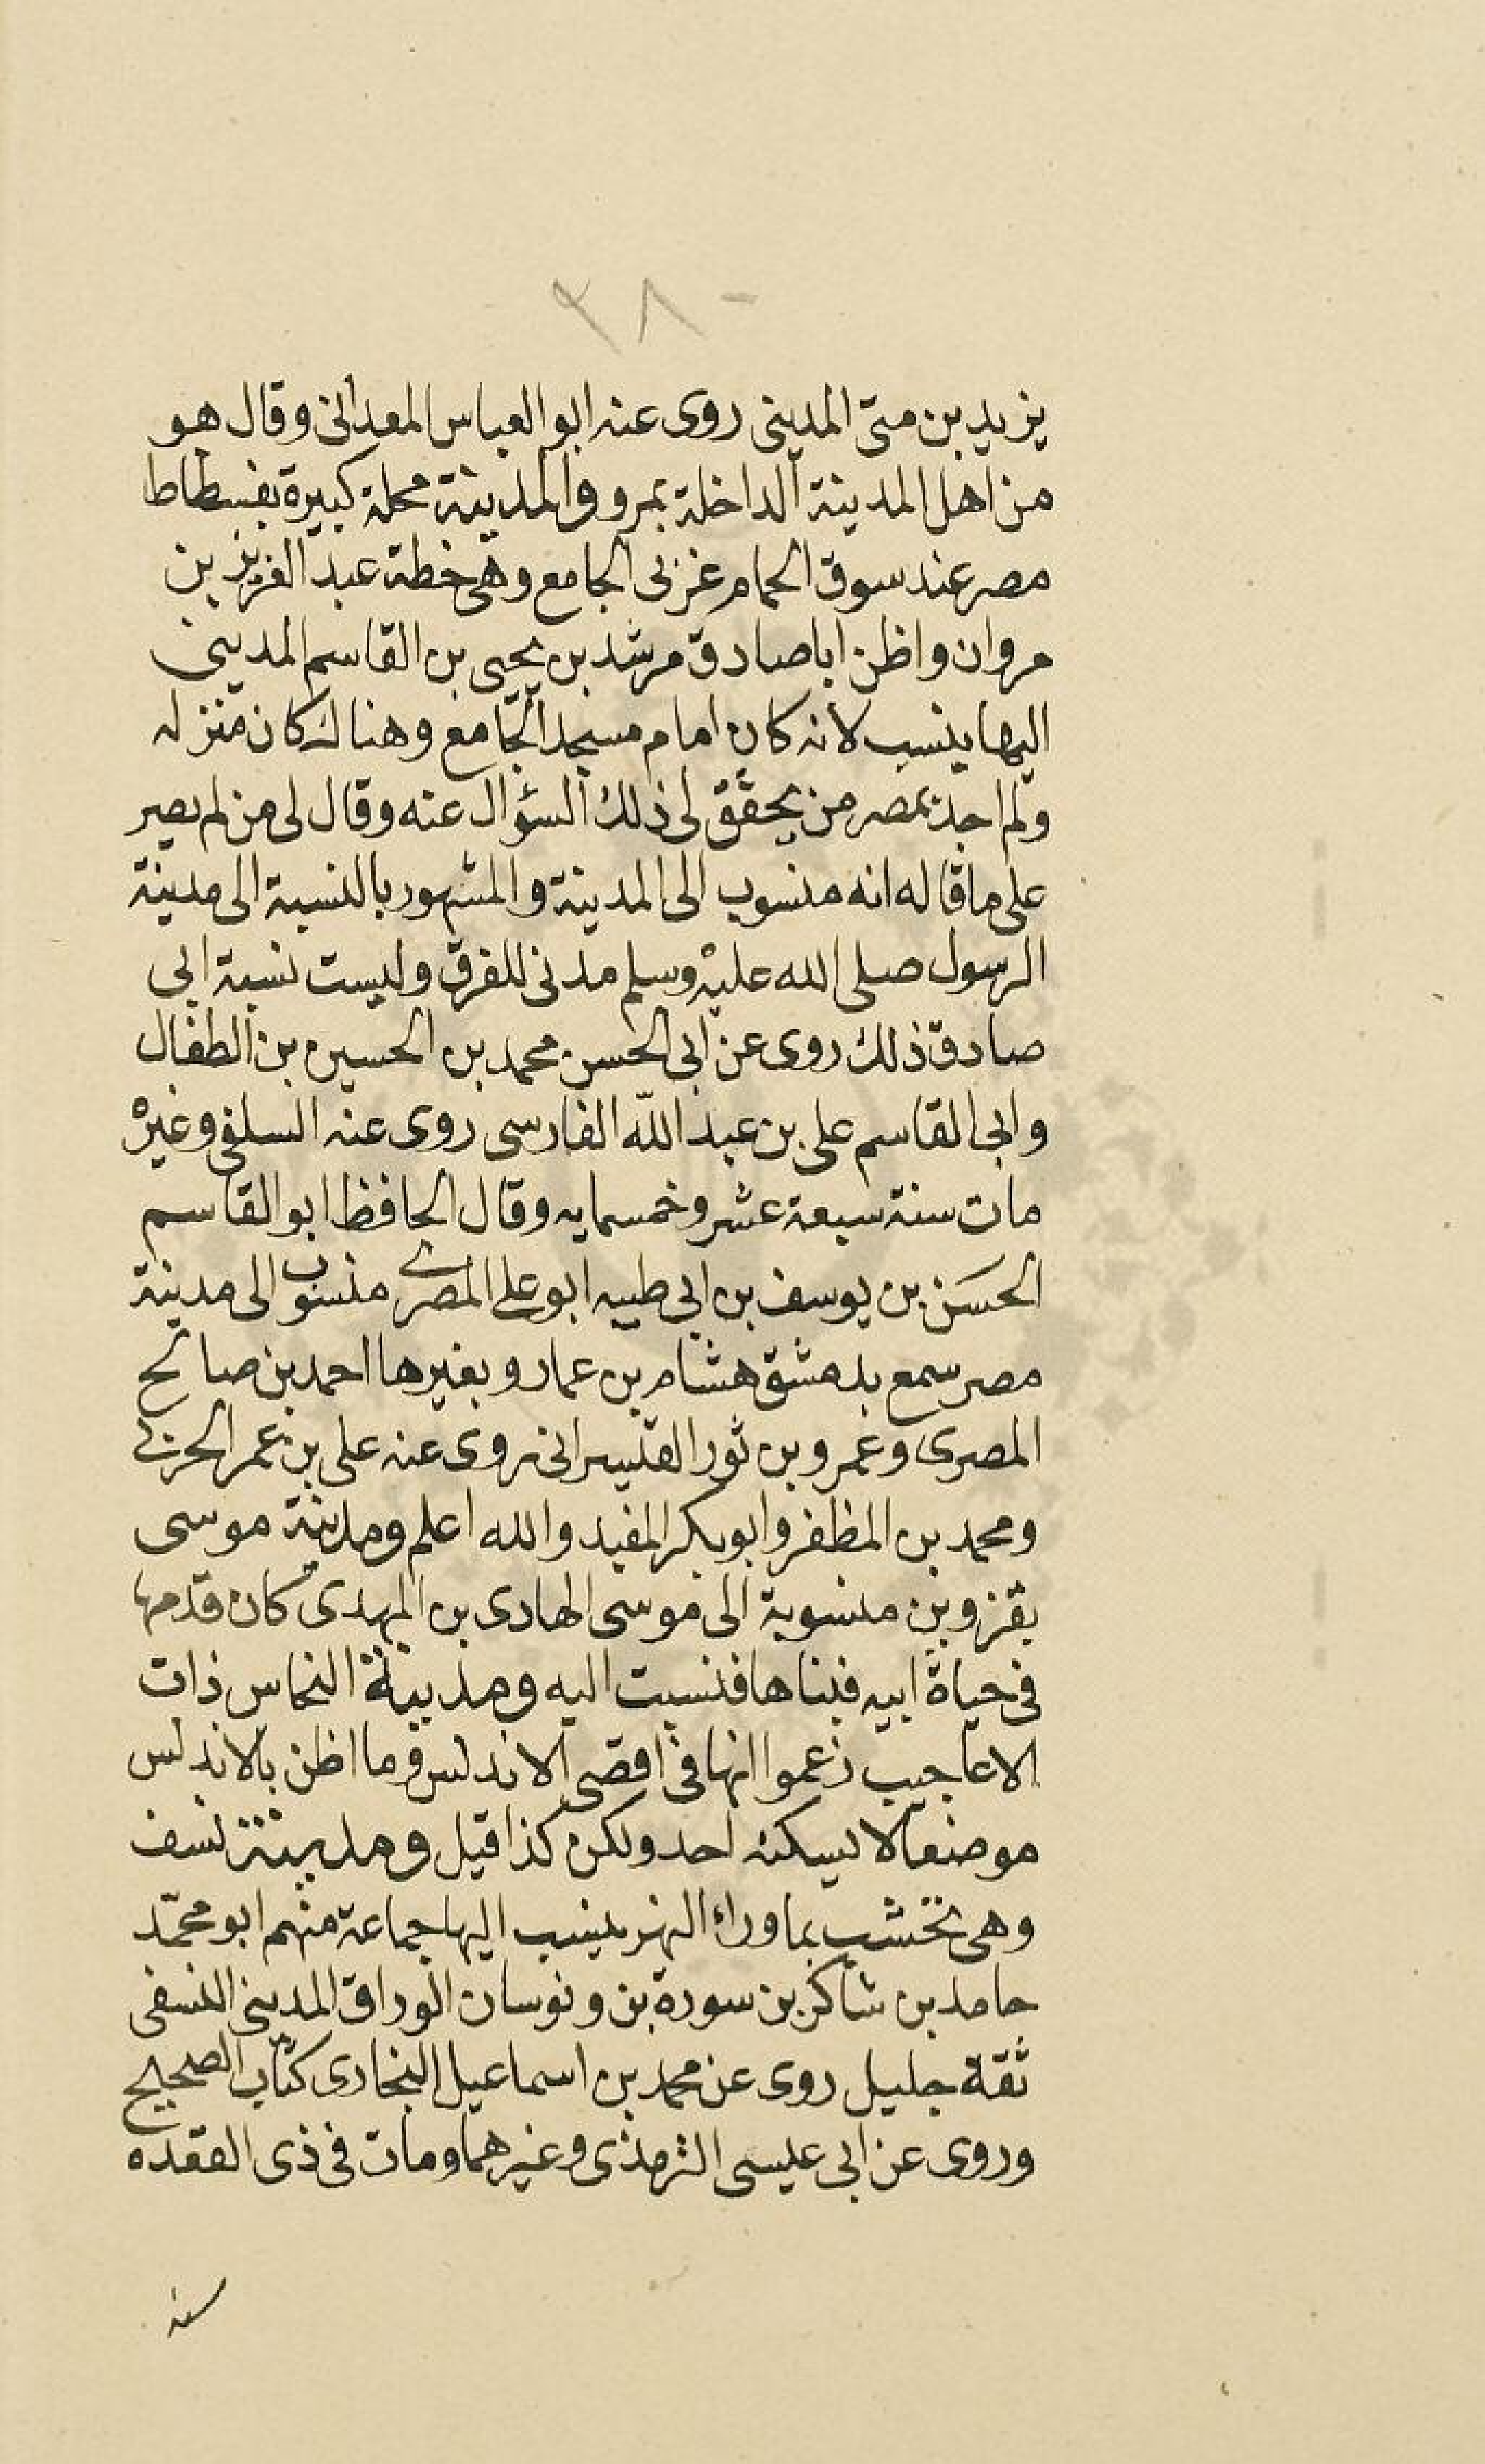 ٢٨٠
يزيد بن متى المدينى روى عنه ابو العباس المعدانى وقال هو
من اهل المدينة الداخلة بمرو والمدينة محلة كبيرة بفسطاط
مصر عند سوق الحمام غربى الجامع وهى خطة عبد العزيز بن
مروان واظن ابا صادق مرشد بن يحيى بن القاسم المدينى
اليها ينسب لانه كان امام مسجد الجامع وهناك كان منزله
ولم اجد بمصر من يحقق لى ذلك السؤال عنه وقال لى من لم يصير
على ما قاله انه منسوب الى المدينة والمشهور بالنسبة الى مدينة
الرسول صلى الله عليه وسلم مدنى للفرق وليست نسبة ابى
صادق ذلك روى عن ابى الحسن محمد بن الحسين بن الطفال
وابى القاسم على بن عبد الله الفارسى روى عنه السلفى وغيره
مات سنة سبعة عشر وخمسمايه وقال الحافظ ابو القاسم
الحسن بن يوسف بن ابى طيبه ابو على المصرى منسوب الى مدينة
مصر سمع بدمشق هشام بن عمار وبغيرها احمد بن صالح
المصرى وعمرو بن ثور القليسرانى روى عنه على بن عمر الحربى
ومحمد بن المظفر وابو بكر المفيد والله اعلم ومدينة موسى
بقزوين منسوبة الى موسى الهادى بن المهدى كان قدمها
فى حياة ابيه فبناها فنسبت اليه ومدينة النحاس ذات
الاعاجيب زعموا انها فى اقصى الاندلس وما اظن بالاندلس
موضعا لا يسكنه احد ولكن كذا قيل ومدينة نسف
وهى نخشب بما وراء النهر ينسب اليها جماعة منهم ابو محمّد
حامد بن شاكر بن سورة بن ونوسان الوراق المدينى النسفى
ثقة جليل روى عن محمد بن اسماعيل البخارى كتاب الصحيح
وروى عن ابى عيسى الترمذى وغيرهما ومات فى ذى القعده
سنه